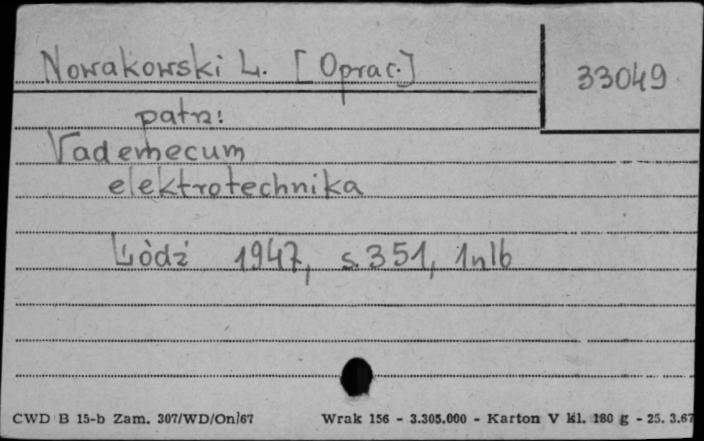 Nowakowski L. [Oprac.]
33049
patrz:
Vademecum
elektrotechnika
Łódź 1947, s. 351, 1nlb
CWD B 15-b Zam. 307/WD/On/67 Wrak 156 - 3.305.000 - Karton V kl. 180 g - 25. 3.67